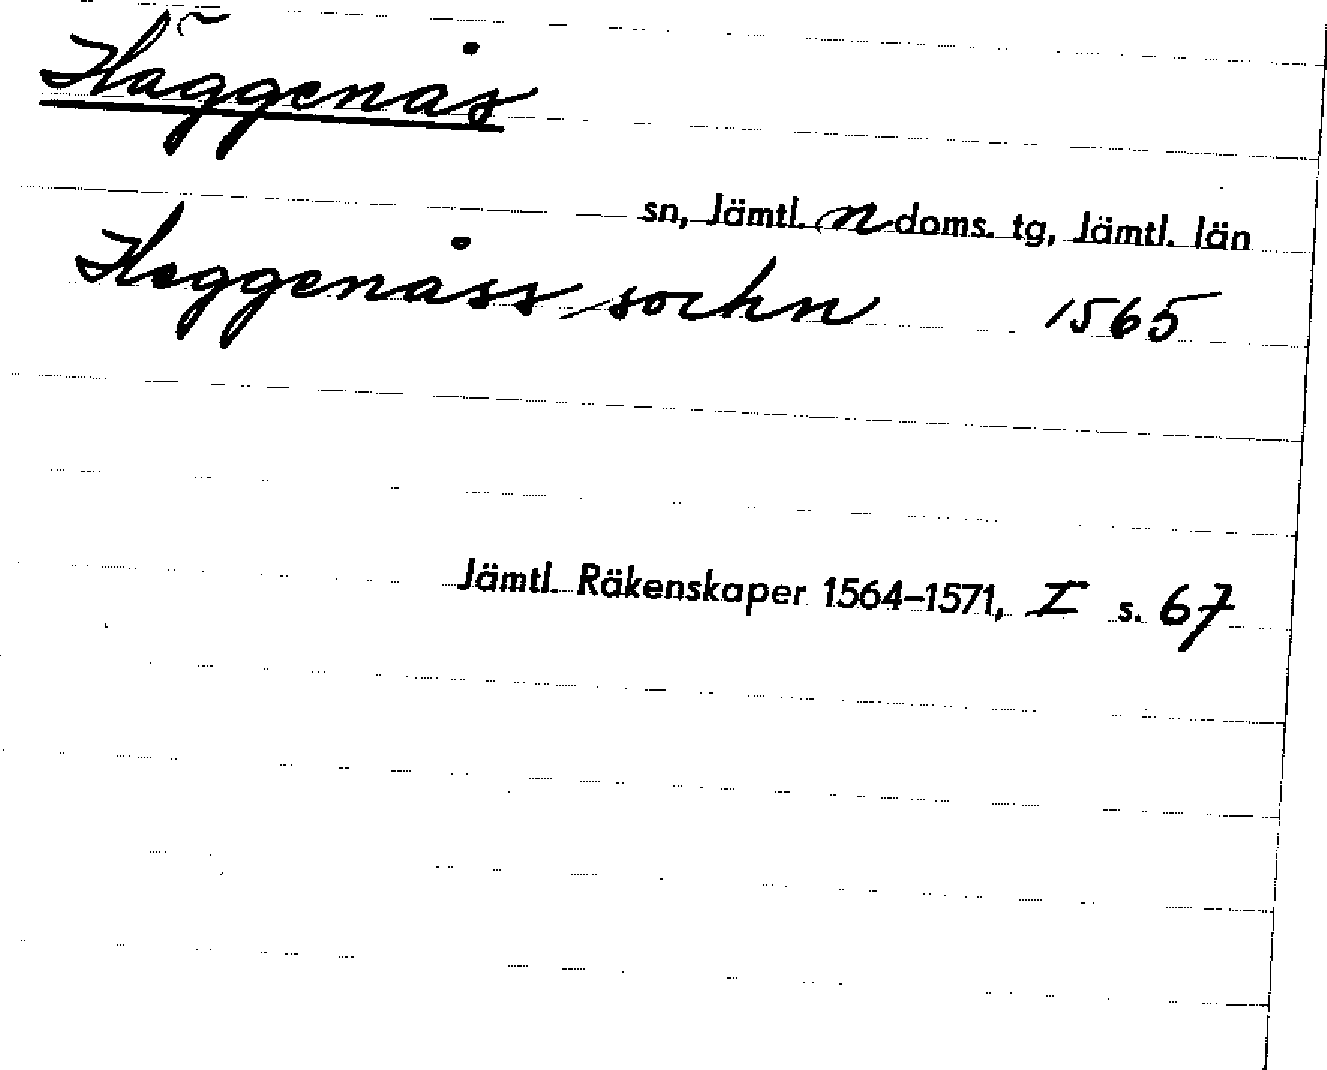 Häggenås
sn, Jämtl. n doms. tg, Jämtl. län
Heggenåss sochn 1565
Jämtl. Räkenskaper 1564–1571, I s. 67